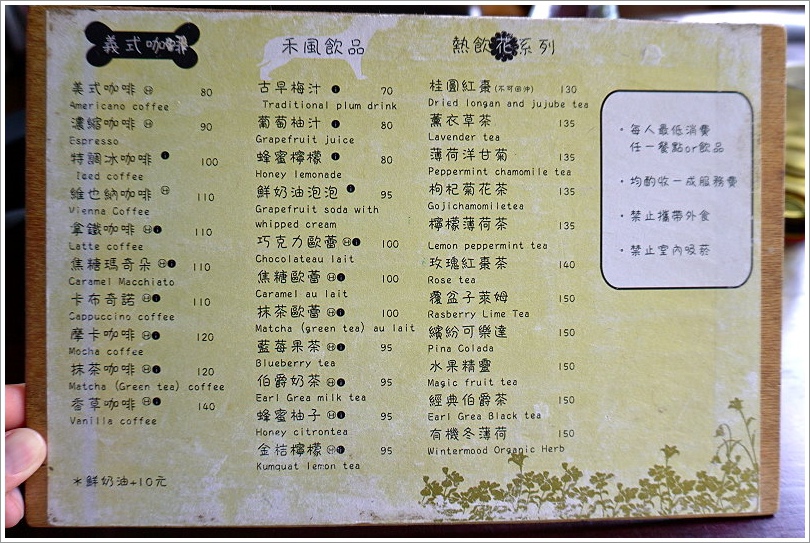 義式咖啡
美式咖啡 Ⓗ 80
Americano coffee
濃縮咖啡 Ⓗ 90
Espresso
特調冰咖啡 ❶ 100
Iced coffee
維也納咖啡 Ⓗ 110
Vienna Coffee
拿鐵咖啡 Ⓗ❶ 110
Latte coffee
焦糖瑪奇朵 Ⓗ❶ 110
Caramel Macchiato
卡布奇諾 Ⓗ❶ 110
Cappuccino coffee
摩卡咖啡 Ⓗ❶ 120
Mocha coffee
抹茶咖啡 Ⓗ❶ 120
Matcha (Green tea) coffee
香草咖啡 Ⓗ❶ 140
Vanilla coffee
*鮮奶油+10元
禾風飲品
古早梅汁 ❶ 70
Traditional plum drink
葡萄柚汁 ❶ 80
Grapefruit juice
蜂蜜檸檬 ❶ 80
Honey lemonade
鮮奶油泡泡 ❶ 95
Grapefruit soda with
whipped cream
巧克力歐蕾 Ⓗ❶ 100
Chocolateau lait
焦糖歐蕾 Ⓗ❶ 100
Caramel au lait
抹茶歐蕾 Ⓗ❶ 100
Matcha (green tea) au lait
藍莓果茶 Ⓗ❶ 95
Blueberry tea
伯爵奶茶 Ⓗ❶ 95
Earl Grea milk tea
蜂蜜柚子 Ⓗ❶ 95
Honey citrontea
金桔檸檬 Ⓗ❶ 95
Kumquat lemon tea
熱飲花系列
桂圓紅棗(不可回沖) 130
Dried longan and jujube tea
薰衣草茶 135
Lavender tea
薄荷洋甘菊 135
Peppermint chamomile tea
枸杞菊花茶 135
Gojichamomiletea
檸檬薄荷茶 135
Lemon peppermint tea
玫瑰紅棗茶 140
Rose tea
覆盆子萊姆 150
Rasberry Lime Tea
繽紛可樂達 150
Pina Colada
水果精靈 150
Magic fruit tea
經典伯爵茶 150
Earl Grea Black tea
有機冬薄荷 150
Wintermood Organic Herb
・每人最低消費
任一餐點or飲品
・均酌收一成服務費
・禁止攜帶外食
・禁止室內吸菸